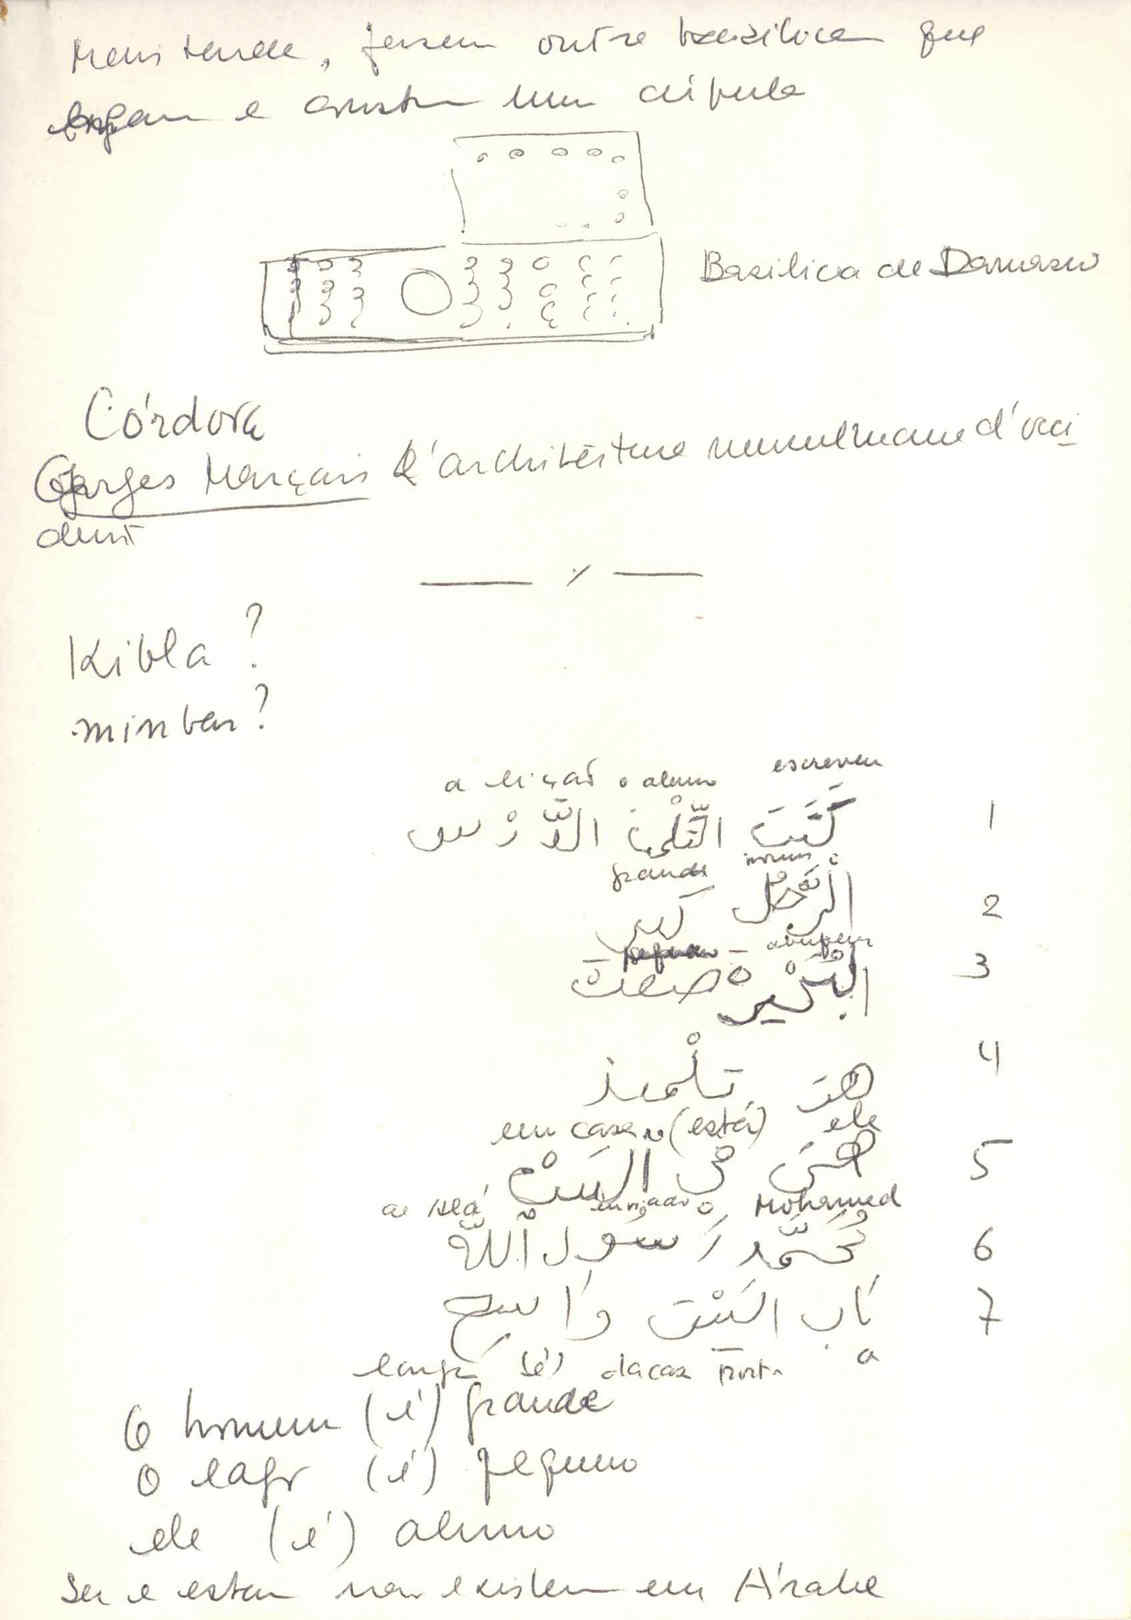 Mais tarde, fazem outra basilica que
e constroem uma cúpula
Basilica de Damasco
Córdova
Georges Marçais L'architecture musulmane d'occi
dent
Kibla?
minbar?
a lição o aluno escreveu
كَتَبَ التِّلْمِيذ الدَّرْس 1
grande homem o
الرَّجُل كَبِير 2
pequeno
البُحَيْرة صغيرة 3
هُوَ تلْميذ 4
em casa (está) ele
هُوَ في الْبَيْت 5
de Alá enviado o Mohamed
مُحَمَّد رَسُول اللّه 6
بَاب البَيْت وَاسِع 7
largo (é) da casa porta a
O homem (é) grande
O lago (é) pequeno
ele (é) aluno
Ser e estar não existem em Árabe